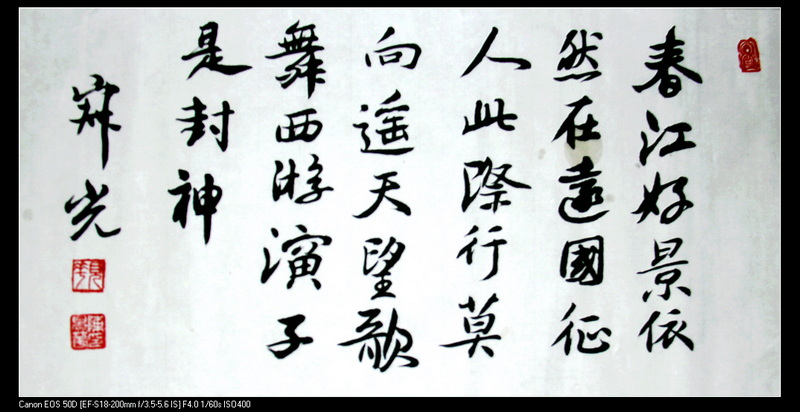 春江好景依
然在遠國征
人此際行莫
向遙天望歌
舞西游演了
是封神
光
Canon EOS 50D [EF-S18-200mm f/3.5-5.6 IS] F4.0 1/60s ISO400